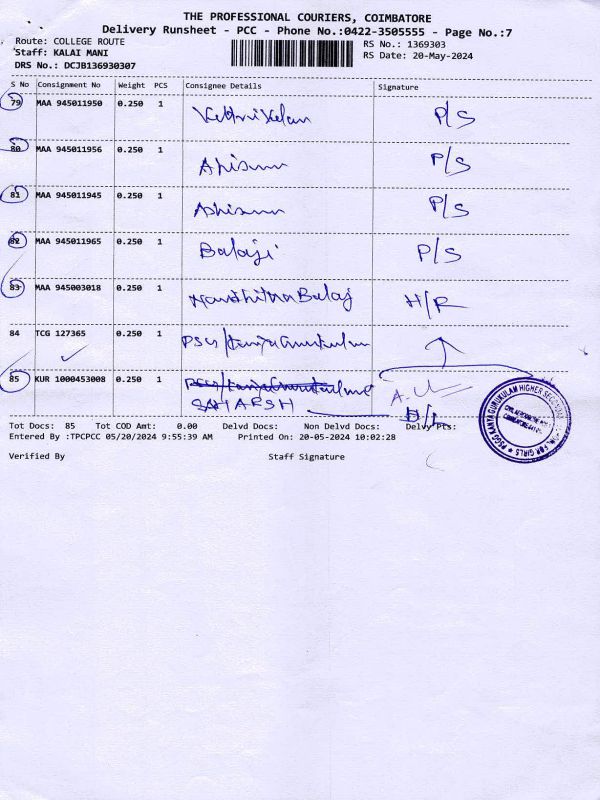 THE PROFESSIONAL COURIERS, COIMBATORE
Delivery Runsheet - PCC - Phone No.:0422-3505555 - Page No.:7
Route: COLLEGE ROUTE
Staff: KALAI MANI
DRS No.: DCJB136930307
RS No.: 1369303
RS Date: 20-May-2024
S No Consignment No Weight PCS Consignee Details Signature
79 MAA 945011950 0.250 1 P/S
80 MAA 945011956 0.250 1 P/S
81 MAA 945011945 0.250 1 P/S
82 MAA 945011965 0.250 1 Balaji P/S
83 MAA 945003018 0.250 1 H/R
84 TCG 127365 0.250 1
85 KUR 1000453008 0.250 1
Tot Docs: 85 Tot COD Amt: 0.00 Delvd Docs: Non Delvd Docs: Delvy Pts:
Entered By :TPCPCC 05/20/2024 9:55:39 AM Printed On: 20-05-2024 10:02:28
Verified By Staff Signature